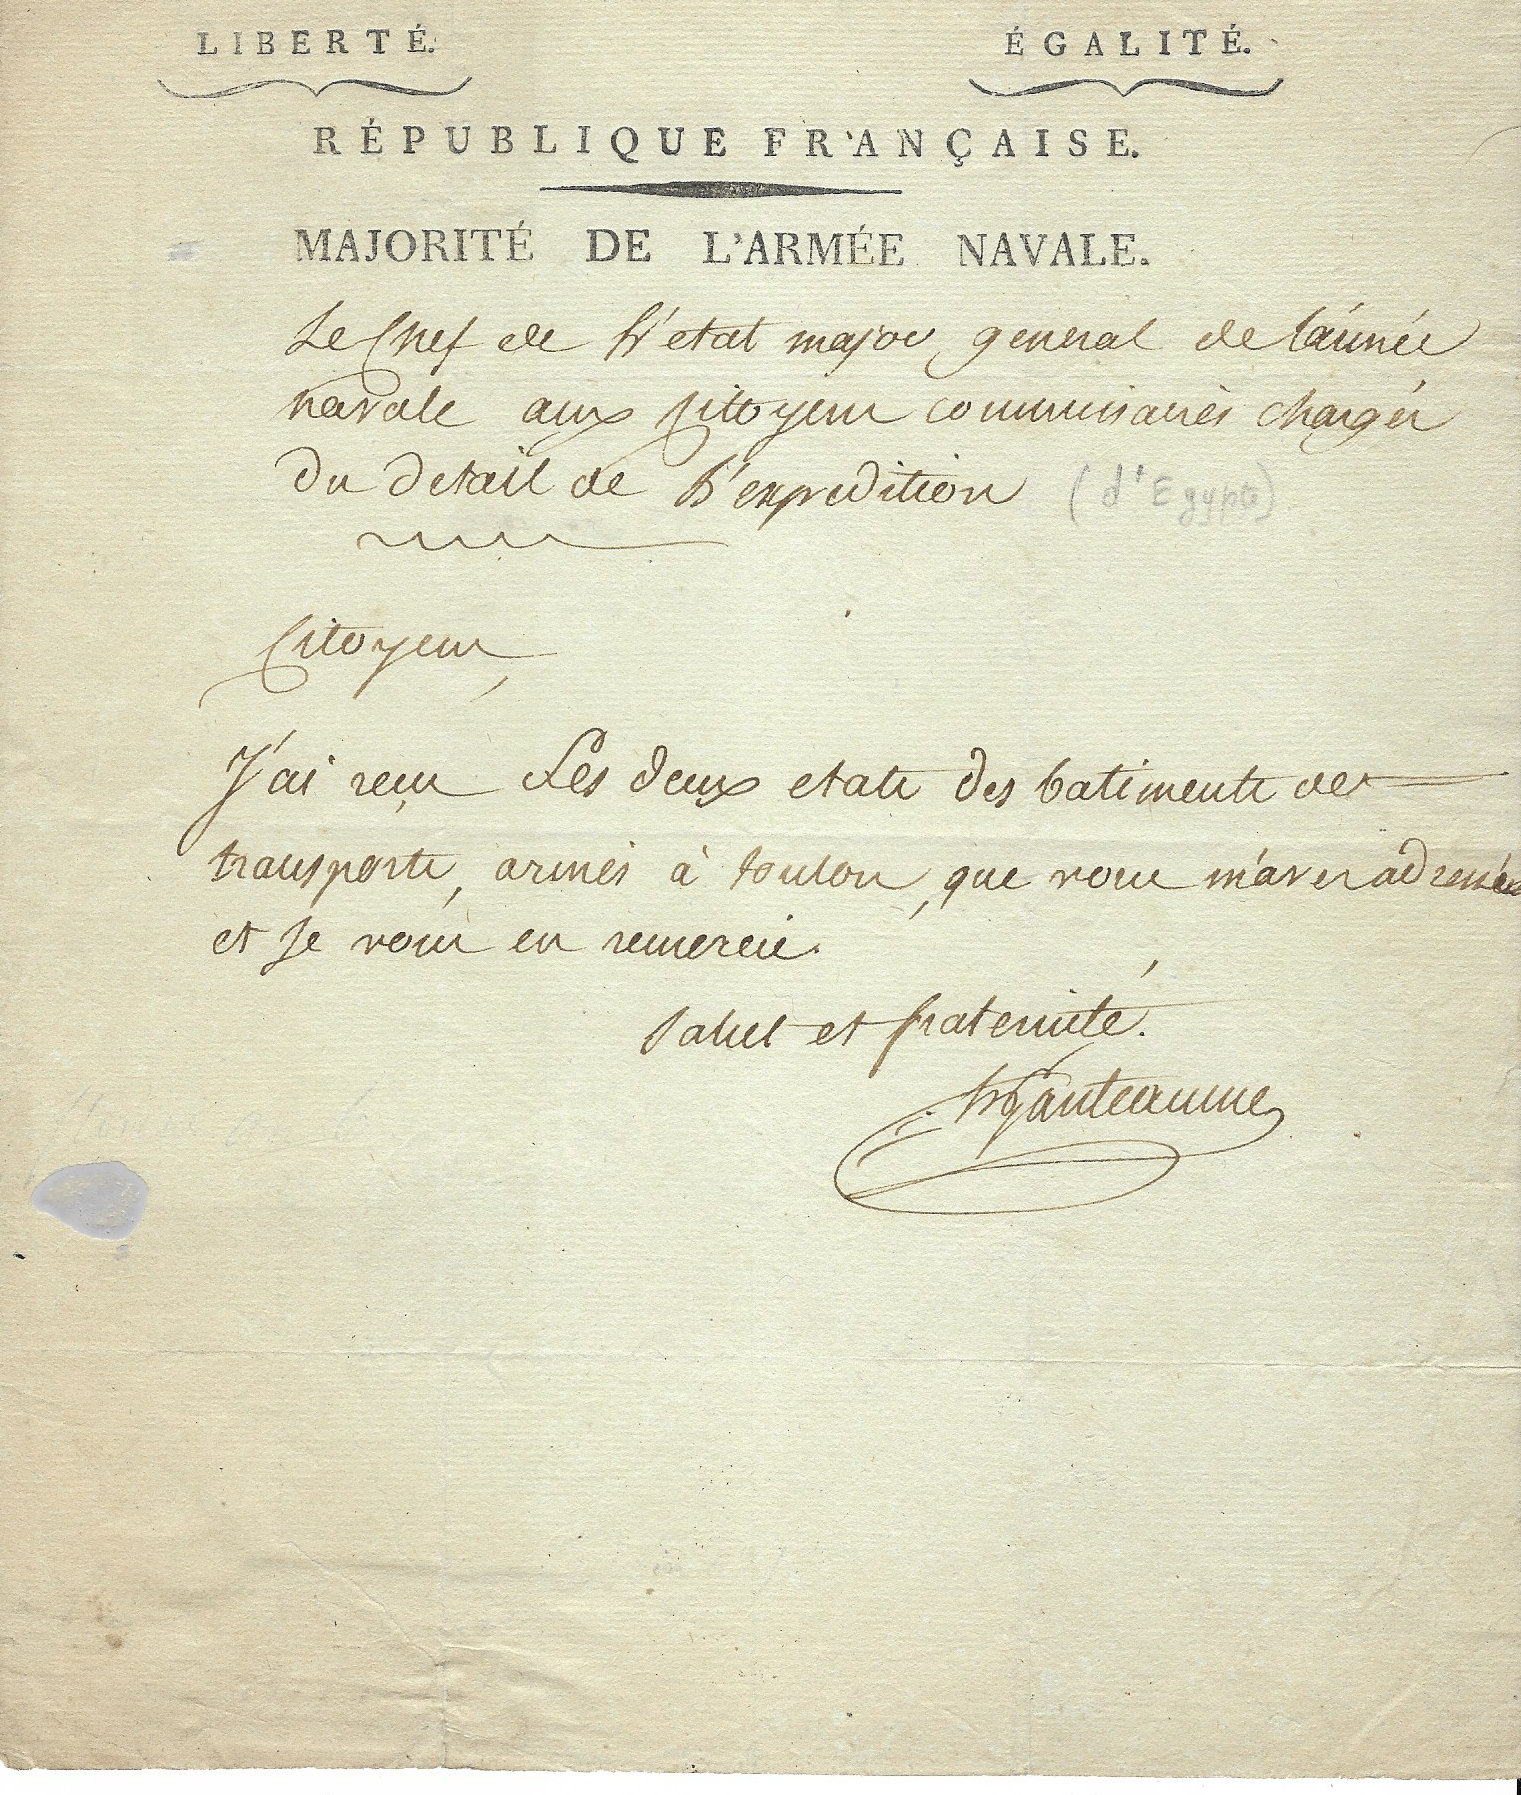 LIBERTÉ. ÉGALITÉ.
RÉPUBLIQUE FRANÇAISE.
MAJORITÉ DE L'ARMÉE NAVALE.
Le Chef de L'etat major general de l'armée
navale aux Citoyens commissaires chargés
du detail de L'expedition (d'Egypte)
Citoyens,
J'ai reçu Les deux etats des batiments de
transports, armés à toulon, que vous m'avez adressés
et je vous en remercie.
salut et fraternité.
hganteaume